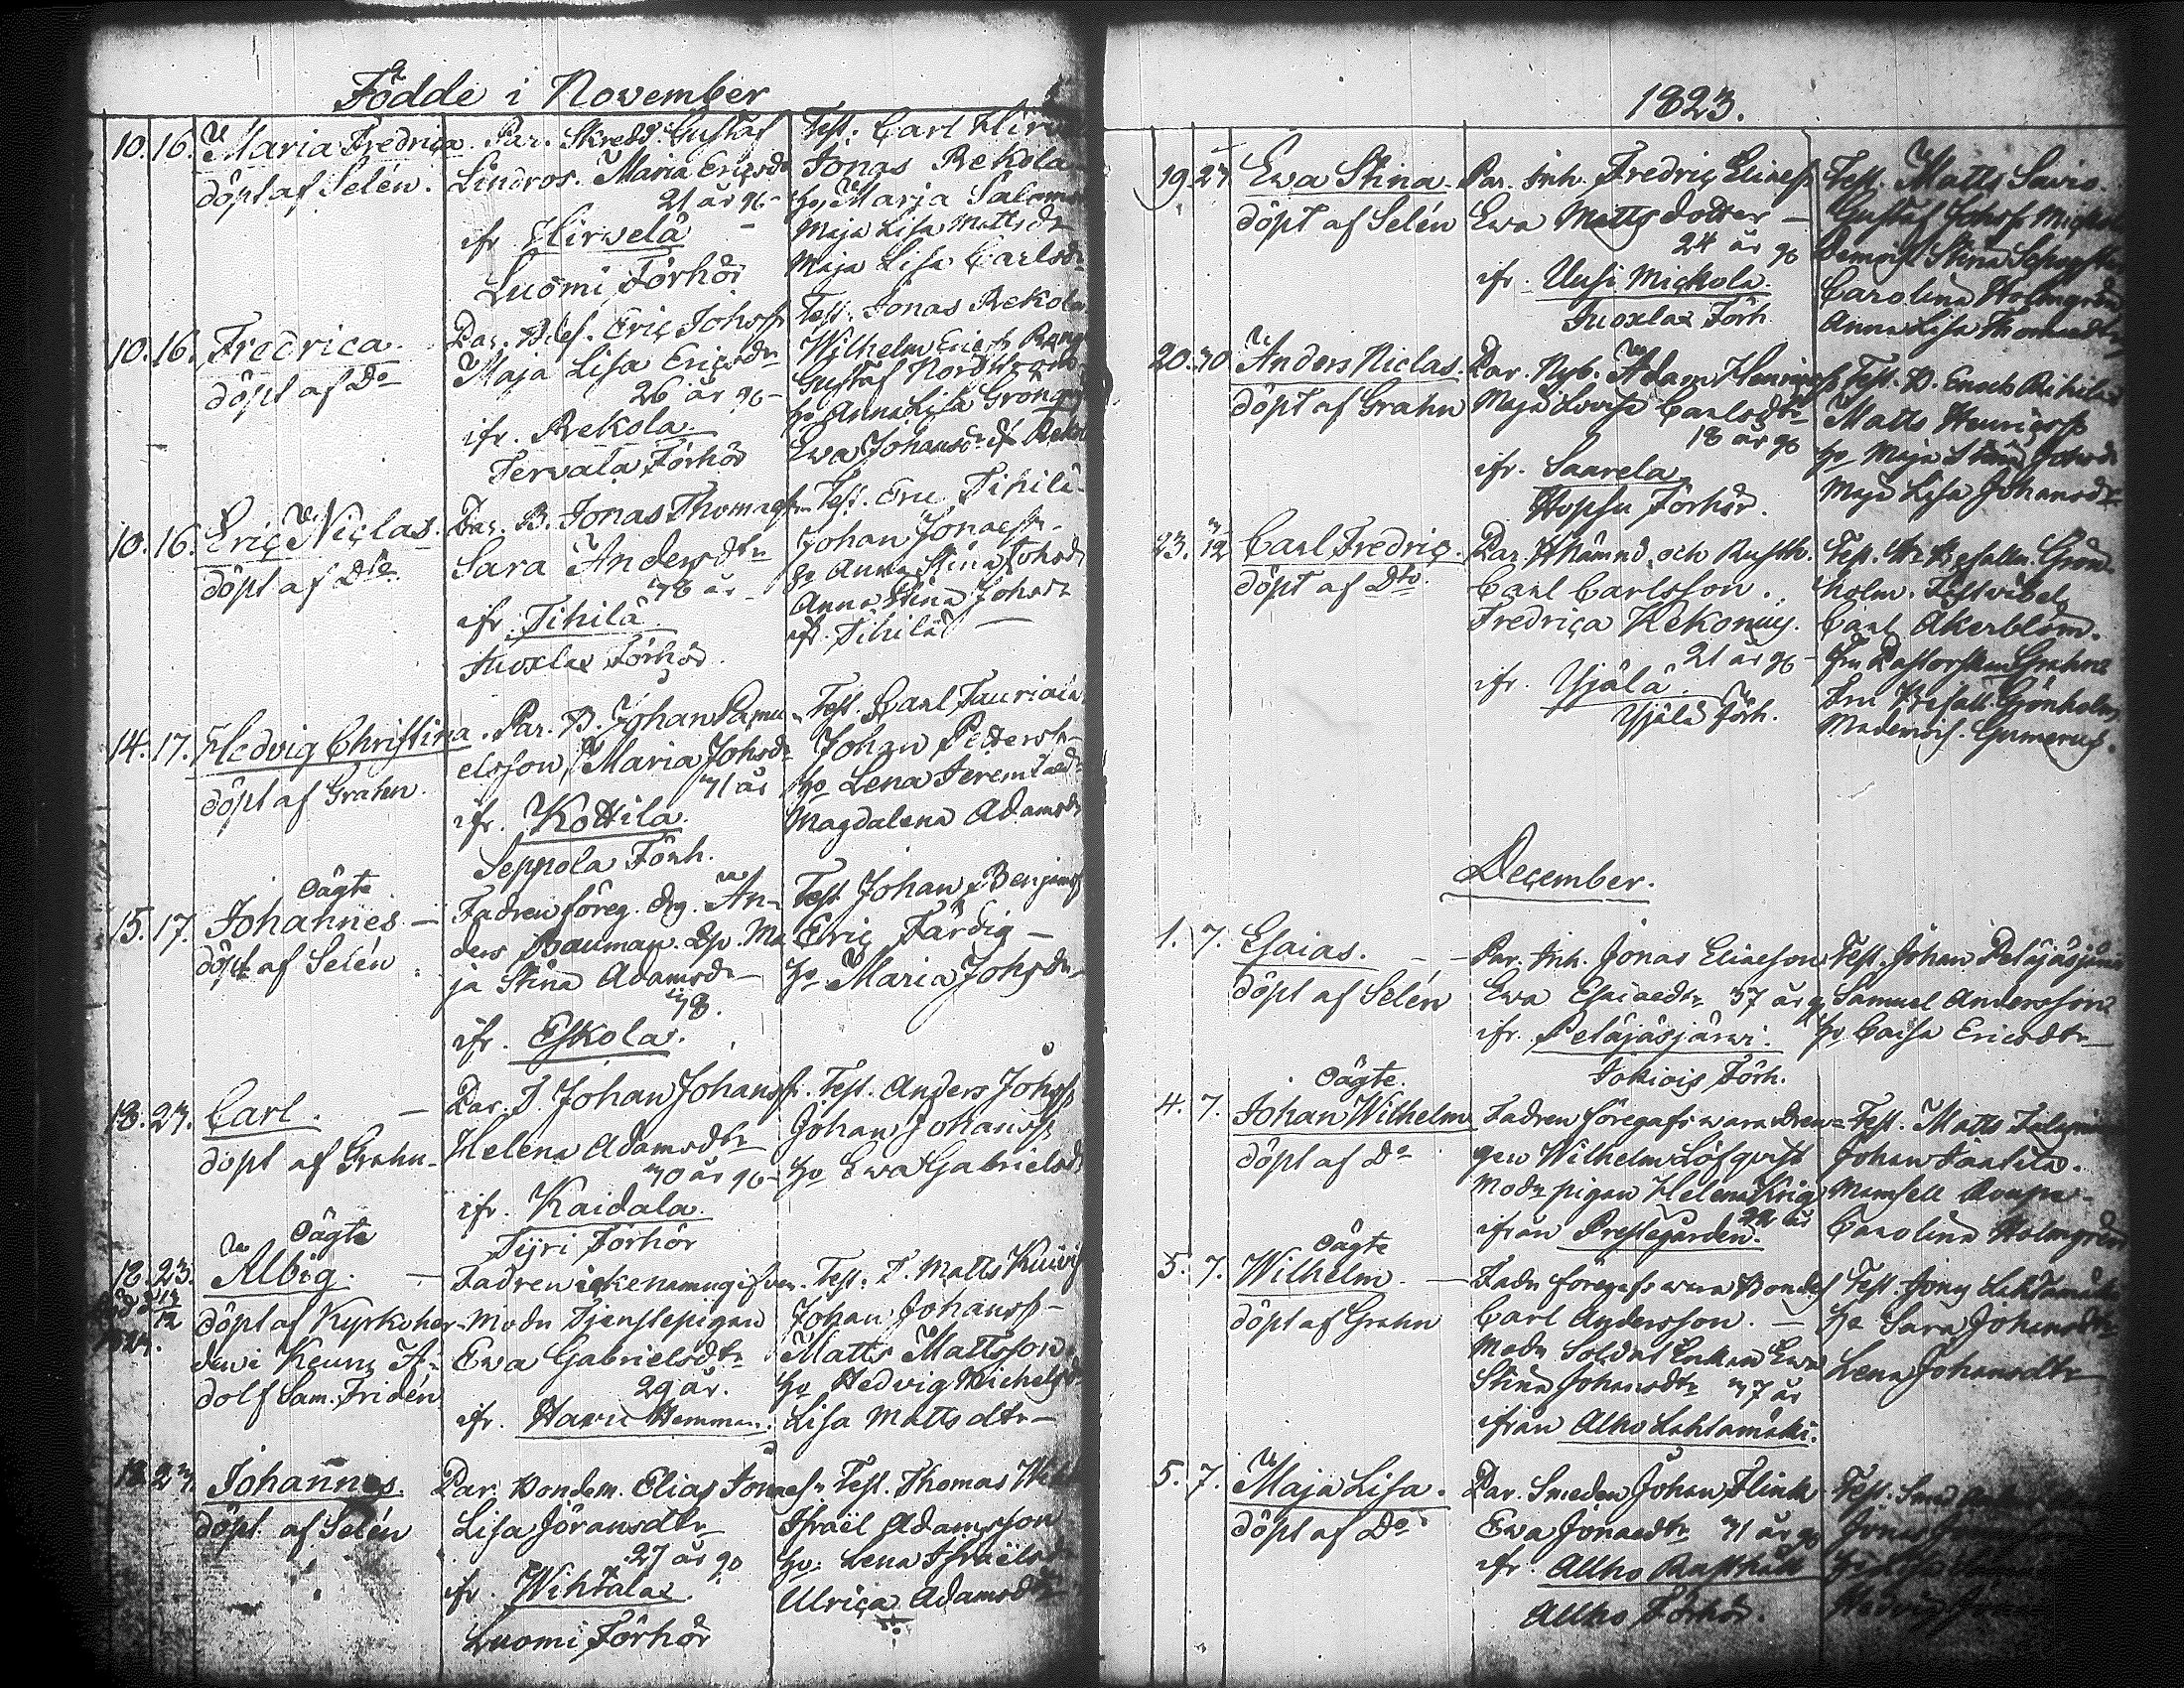 Födde i November
10. 16. Maria Fredrica.
döpt af Selén.
Par. Skredd. Gustaf
Lindros. Maria Ericsdr
21 år gl.
ifr. Hirvelä
Luomi Förhör
Test. Carl
Jonas Rekola
ho Marja
Maja Lisa Mattsdr
Maja Lisa Carlsdr
10. 16. Fredrica.
döpt af Do
Par. Eric Johss.
Maja Lisa Ericsdr
26 år gl.
ifr. Rekola.
Tervala Förhör
Test. Jonas Rekola
Wilhelm Ericss.
Gustaf Nordström
ho Anna Lisa
Ewa Johansdr
10. 16. Eric Niclas.
döpt af Dto
Par. B. Jonas Thomass.
Sara Andersdtr
38 år
ifr. Tihilä
Juoxlax Förhör.
Test. Eric Tihilä
Johan Jonass.
ho Anna Stina Johsdr
Anna Stina Johsdr
ifr. Tihilä
14. 17. Hedvig Christina.
döpt af Grahn.
Par. B. Johan Samu-
elsson, Maria Johsdr
31 år
ifr. Kottila.
Seppola Förh.
Test. Carl Tauriala
Johan Pettersn
ho Lena
Magdalena Adamsdr
oägte
15. 17. Johannes.
döpt af Selén
Fadren föreg. drg. An-
ders Bauman. Qp. Ma-
ja Stina Adamsdr
38.
ifr. Eskola.
Test. Johan Benjamss
Eric Färdig
ho Maria Johsdr
18. 23. Carl.
döpt af Grahn.
Par. T. Johan Johanss.
Helena Adamsdtr
30 år gl.
ifr. Kaidala.
Tyri Förhör
Test. Anders Johss.
Johan Johanss.
ho Ewa Gabrielsdr
oägte
18. 23. Albig.
döpt af Kyrkoher-
den i Keuru A-
dolf Sam. Fridén
Fadren icke namngifven.
Modn Tjenstepigan
Ewa Gabrielsdtr
29 år.
ifr. Hemman.
Test. T. Matts
Johan Johanss.
Matts Mattsson.
ho Hedvig Michelsdr
Lisa Mattsdtr
18. 23. Johannes.
döpt af Selén
Par. Bondem. Elias Jonaesn
Lisa Jöransdtr
27 år gl
ifr. Wihtala.
Luomi Förhör
Test. Thomas
Israël Adamsson
ho. Lena Israëlsdr
Ulrica Adamsdtr
1823.
19. 27. Ewa Stina.
döpt af Selén
Par. Inh. Fredric Eliaess.
Ewa Mattsdotter
24 år gl
ifr. Uusi Mickola.
Juoxlax Förh.
Test. Matts Savio.
Gustaf Johss.
Demois. Stina
Carolina Holmgren
Anna Lisa Thomaedtr
20. 30. Anders Niclas.
döpt af Grahn
Par. Nyb. Adam Henricss.
Maja Lovisa Carlsdtr
18 år gl
ifr. Saarela
Hopsu Förhör.
Test. B. Enoch
Matts Henricss.
ho Maja Stina Johsdr
Maja Lisa Johansdr
23. 3/12 Carl Fredric.
döpt af Dto
Par. Nämnd. och Rusth.
Carl Carlsson.
Fredrica Hekonius.
21 år gl.
ifr. Yjälä.
Yjälä Förh.
Test. Hr Befalln. Grön-
holm.
Carl Åkerblom.
Fru Pastorskan Grahn
Fru Befall. Grönholm
Mademois. Gumerus.
December.
1. 7. Esaias.
döpt af Selén
Par. Inh. Jonas Eliaeson
Ewa Esaiaedtr 37 år gl
ifr. Petäjäsjärvi.
Jokiois Förh.
Test. Johan Petäjäsjärvi
Samuel Andersson
ho Caisa Ericsdtr
oägte.
4. 7. Johan Wilhelm
döpt af Do
Fadren föregafs wara dren-
gen Wilhelm Löfqvist
Modr pigan Helena Krig
22 år
ifrån Prestegården.
Test. Matts
Johan
Mamsell
Carolina Holmgren
oägte
5. 7. Wilhelm.
döpt af Grahn
Fadr föregafs wara Bondes.
Carl Andersson.
Modr Soldat Enkan Ewa
Stina Johansdtr 37 år
ifrån Alho Lahtamäki.
Test. Jonas Lahtamäki
ho Sara Johansdtr
Lena Johansdtr
5. 7. Maja Lisa.
döpt af Do
Par. Smeden Johan Flink
Ewa Jonaedtr 31 år gl
ifr. Allho Rusthåll
Allho Förhör.
Test. Smed
Jonas
Hedvig